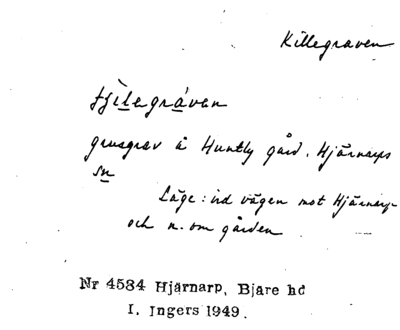 Killegraven
fjilegråven
grusgrav å Huntly gård, Hjärnarps
sn
Läge: vid vägen mot Hjärnarp
och n. om gården
Nr 4584 Hjärnarp, Bjäre hd
I. Ingers 1949.